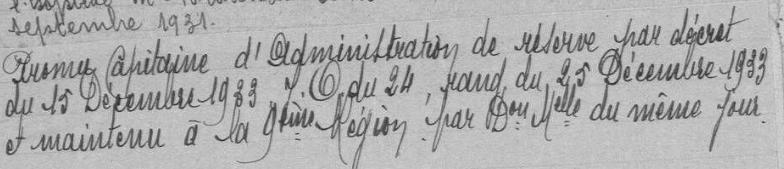 septembre 1931.
Promu Capitaine d'Administration de réserve par décret
du 15 Décembre 1933 J.O. du 24, rang du 25 Décembre 1933
et maintenu à la 9ème Région par Don Melle du même jour.